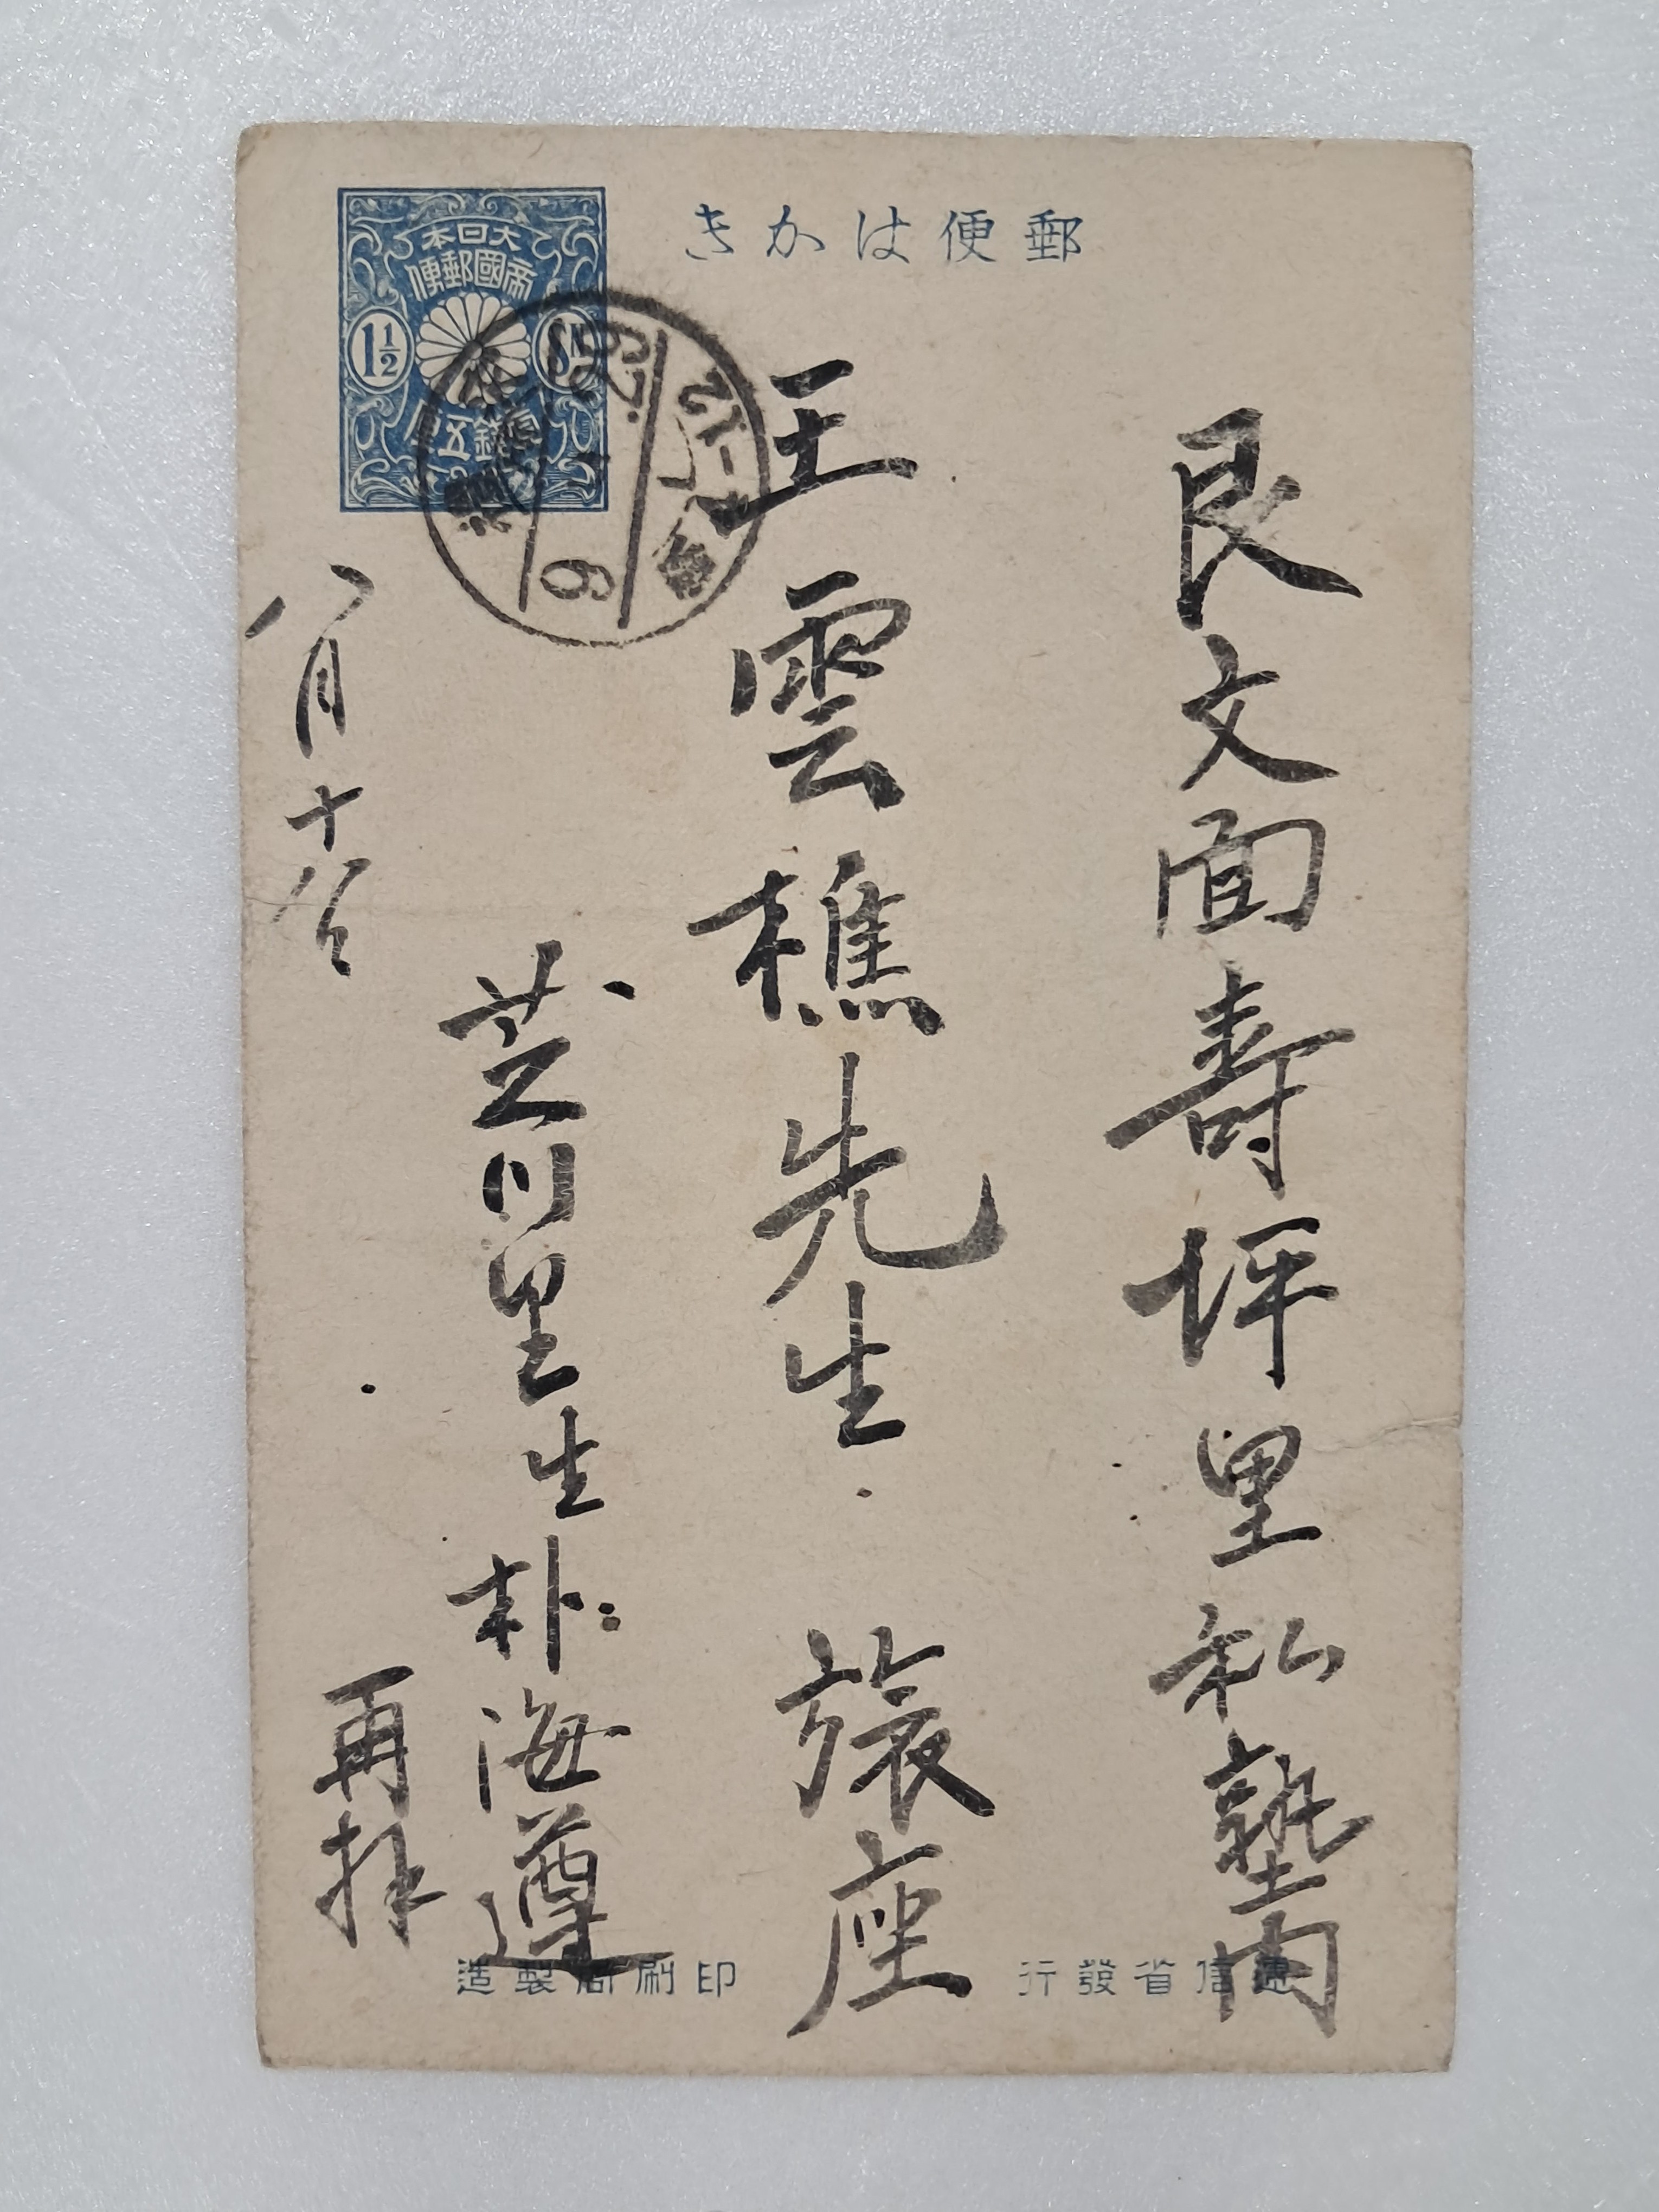 郵便はかき
大日本
帝國郵便
1½ Sn
壹錢五厘
9
艮文面壽坪里私塾內
王雲樵先生 旅座
芝川里生朴海遵
再拜
八月十八日
遞信省發行
印刷局製造